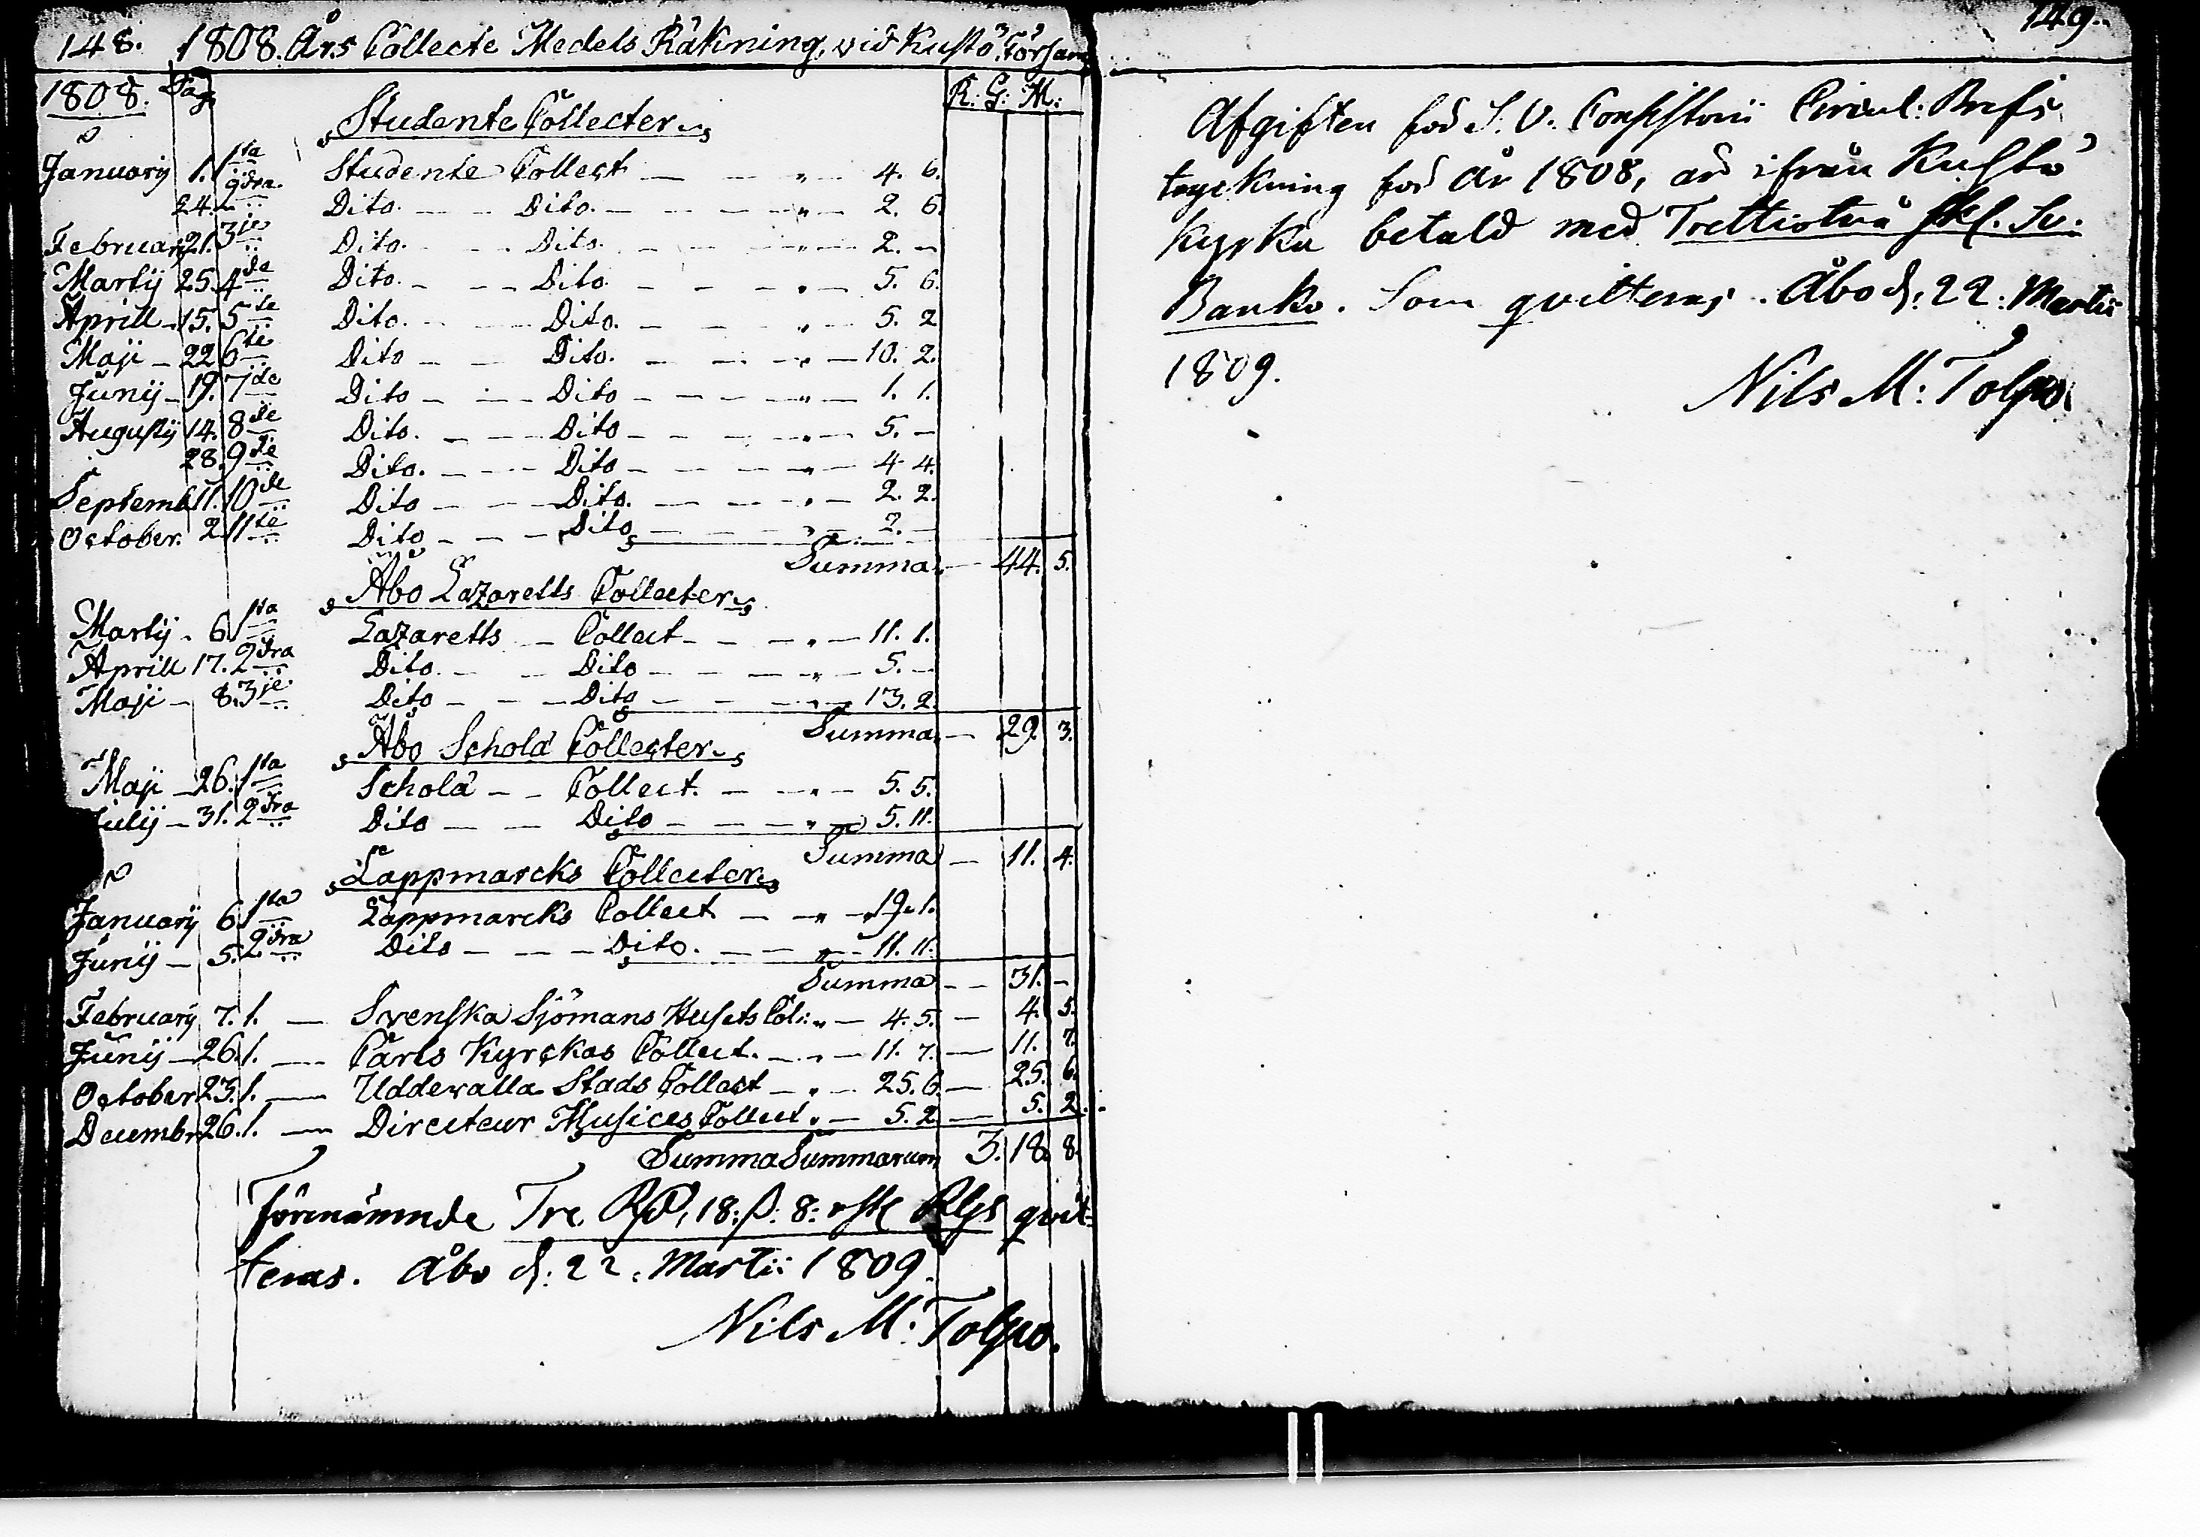 148. 1808. Års Collecte Medels Räkning, vid Kustö Församl
1808. Dag. R. G: M:
Studente Collecter
January 1. 1sta Studente Collect — — „ — 4. 6.
24. 2dra Dito. — — Dito. — — „ — 2. 6.
Februarij 21. 3je Dito. — — Dito. — — „ — 2. —
Martij 25. 4de Dito. — — Dito. — — „ — 5. 6.
Aprill 15. 5te Dito. — — Dito. — — „ — 5. 2
Maji — 22 6te Dito — — Dito. — — „ — 10. 2.
Junij — 19. 7de Dito — — Dito — — „ — 1. 1.
Augustij 14. 8de Dito. — — Dito — — „ — 5. —
28. 9de Dito. — — Dito — — „ — 4 4.
Septemb 11. 10de Dito — — Dito. — — „ — 2. 2.
October. 2 11te Dito — — Dito — — „ — 2. —
Summa. — 44. 5.
Åbo Lazaretts Collecter
Martij. 6. 1sta Lazaretts — Collect — — „ — 11. 1.
Aprill 17. 2dra Dito. — — Dito — — „ — 5. —
Maji — 8. 3je Dito — — Dito — — „ — 13. 2.
Summa. — 29. 3.
Åbo Schola Collecter
Maji — 26. 1sta Schola — — Collect. — — „ — 5. 5.
Julij — 31. 2dra Dito — — Dito — — „ — 5. 11.
Summa — 11. 4.
Lappmarcks Collecter
January 6. 1sta Lappmarcks Collect — — „ — 19. 1.
Junij — 5. 2dra Dito — — Dito. — — „ — 11. 11.
Summa — 31. —
February 7. 1. — Svenska Sjömans Husets Col: „ — 4. 5. — 4. 5.
Junij — 26. 1. — Carls Kyrckas Collect. — „ — 11. 7. — 11. 7.
October 23. 1. — Uddevalla Stads Collect — „ — 25. 6. — 25. 6.
Decembr 26. 1. — Directeur Musices Collect. „ — 5. 2 — 5. 2.
Summa Summarum 3. 18. 8.
Förenämnde Tre Rd, 18: ß: 8: Rgs qvit-
teras. Åbo d: 22. Martii 1809.
Nils M: Tolpo.
149.
Afgiften för S. V. Consistorii Circul: Brefs
tryckning för År 1808, är ifrån Kustö
Kyrka betald med Trettiotvå skl. Sv:
Banko. Som qvitteras. Åbo d: 22: Martii
1809.
Nils M: Tolpo.